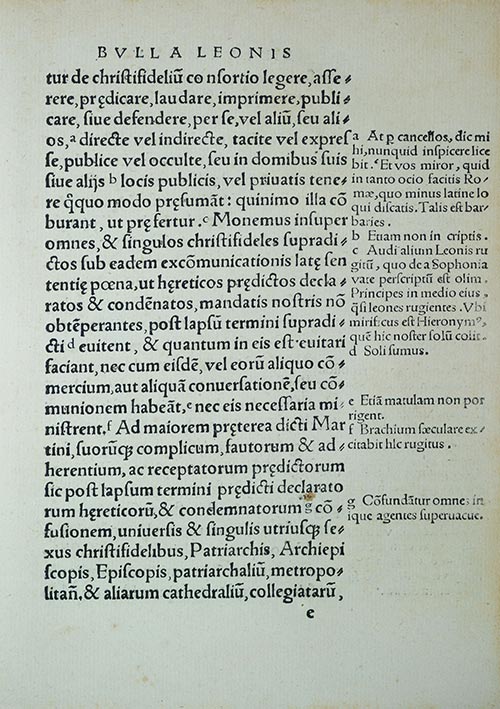 BVLLA LEONIS
tur de christifideliū consortio legere, asse⸗
rere, prędicare, laudare, imprimere, publi⸗
care, siue defendere, per se, vel aliū, seu ali⸗
os,ᵃ directe vel indirecte, tacite vel expres⸗
se, publice vel occulte, seu in domibus suis
siue alijs ᵇ locis publicis, vel priuatis tene⸗
re q̄quo modo pręsumāt: quinimo illa cō⸗
burant, ut pręfertur.ᶜ Monemus insuper
omnes, & singulos christifideles supradi⸗
ctos sub eadem excōmunicationis latę sen⸗
tentię pœna, ut hęreticos prędictos decla⸗
ratos & condēnatos, mandatis nostris nō
obtēperantes, post lapsū termini supradi⸗
cti ᵈ euitent, & quantum in eis est euitari
faciant, nec cum eisdē, vel eorū aliquo cō⸗
mercium, aut aliquā conuersationē, seu cō⸗
munionem habeāt,ᵉ nec eis necessaria mi⸗
nistrent.ᶠ Ad maiorem pręterea dicti Mar⸗
tini, suorūq; complicum, fautorum & ad⸗
herentium, ac receptatorum prędictorum
sic post lapsum termini prędicti declarato⸗
rum hęreticorū, & condemnatorum ᵍ cō⸗
fusionem, uniuersis & singulis utriusq; se⸗
xus christifidelibus, Patriarchis, Archiepi⸗
scopis, Episcopis, patriarchaliū, metropo⸗
litan̄, & aliarum cathedraliū, collegiatarū,
e
a At p cancellos, dic mi
hi, nunquid inspicere lice
bit. Et vos miror, quid
in tanto ocio facitis Ro⸗
mæ, quo minus latine lo
qui discatis. Talis est bar⸗
baries.
b Etiam non in criptis.
c Audi alium Leonis ru
gitū, quo de a Sophonia
vate perscriptū est olim,
Principes in medio eius,
q̄si leones rugientes. Vbi
mirificus est Hieronymꝰ,
quē hic noster solū colit.
d Soli sumus.
e Etiā matulam non por
rigent.
f Brachium sæculare ex⸗
citabit hic rugitus.
g Cōfundātur omnes in
ique agentes superuacue.